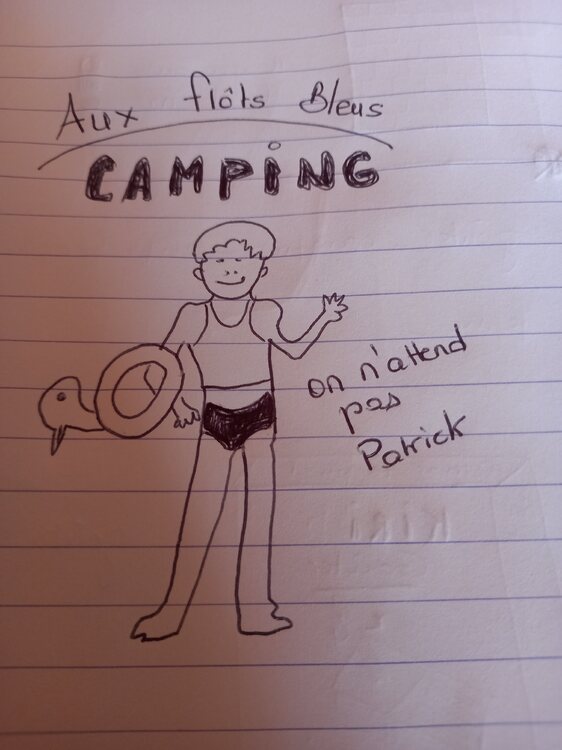 Aux flôts Bleus
CAMPING
on n'attend
pas
Patrick